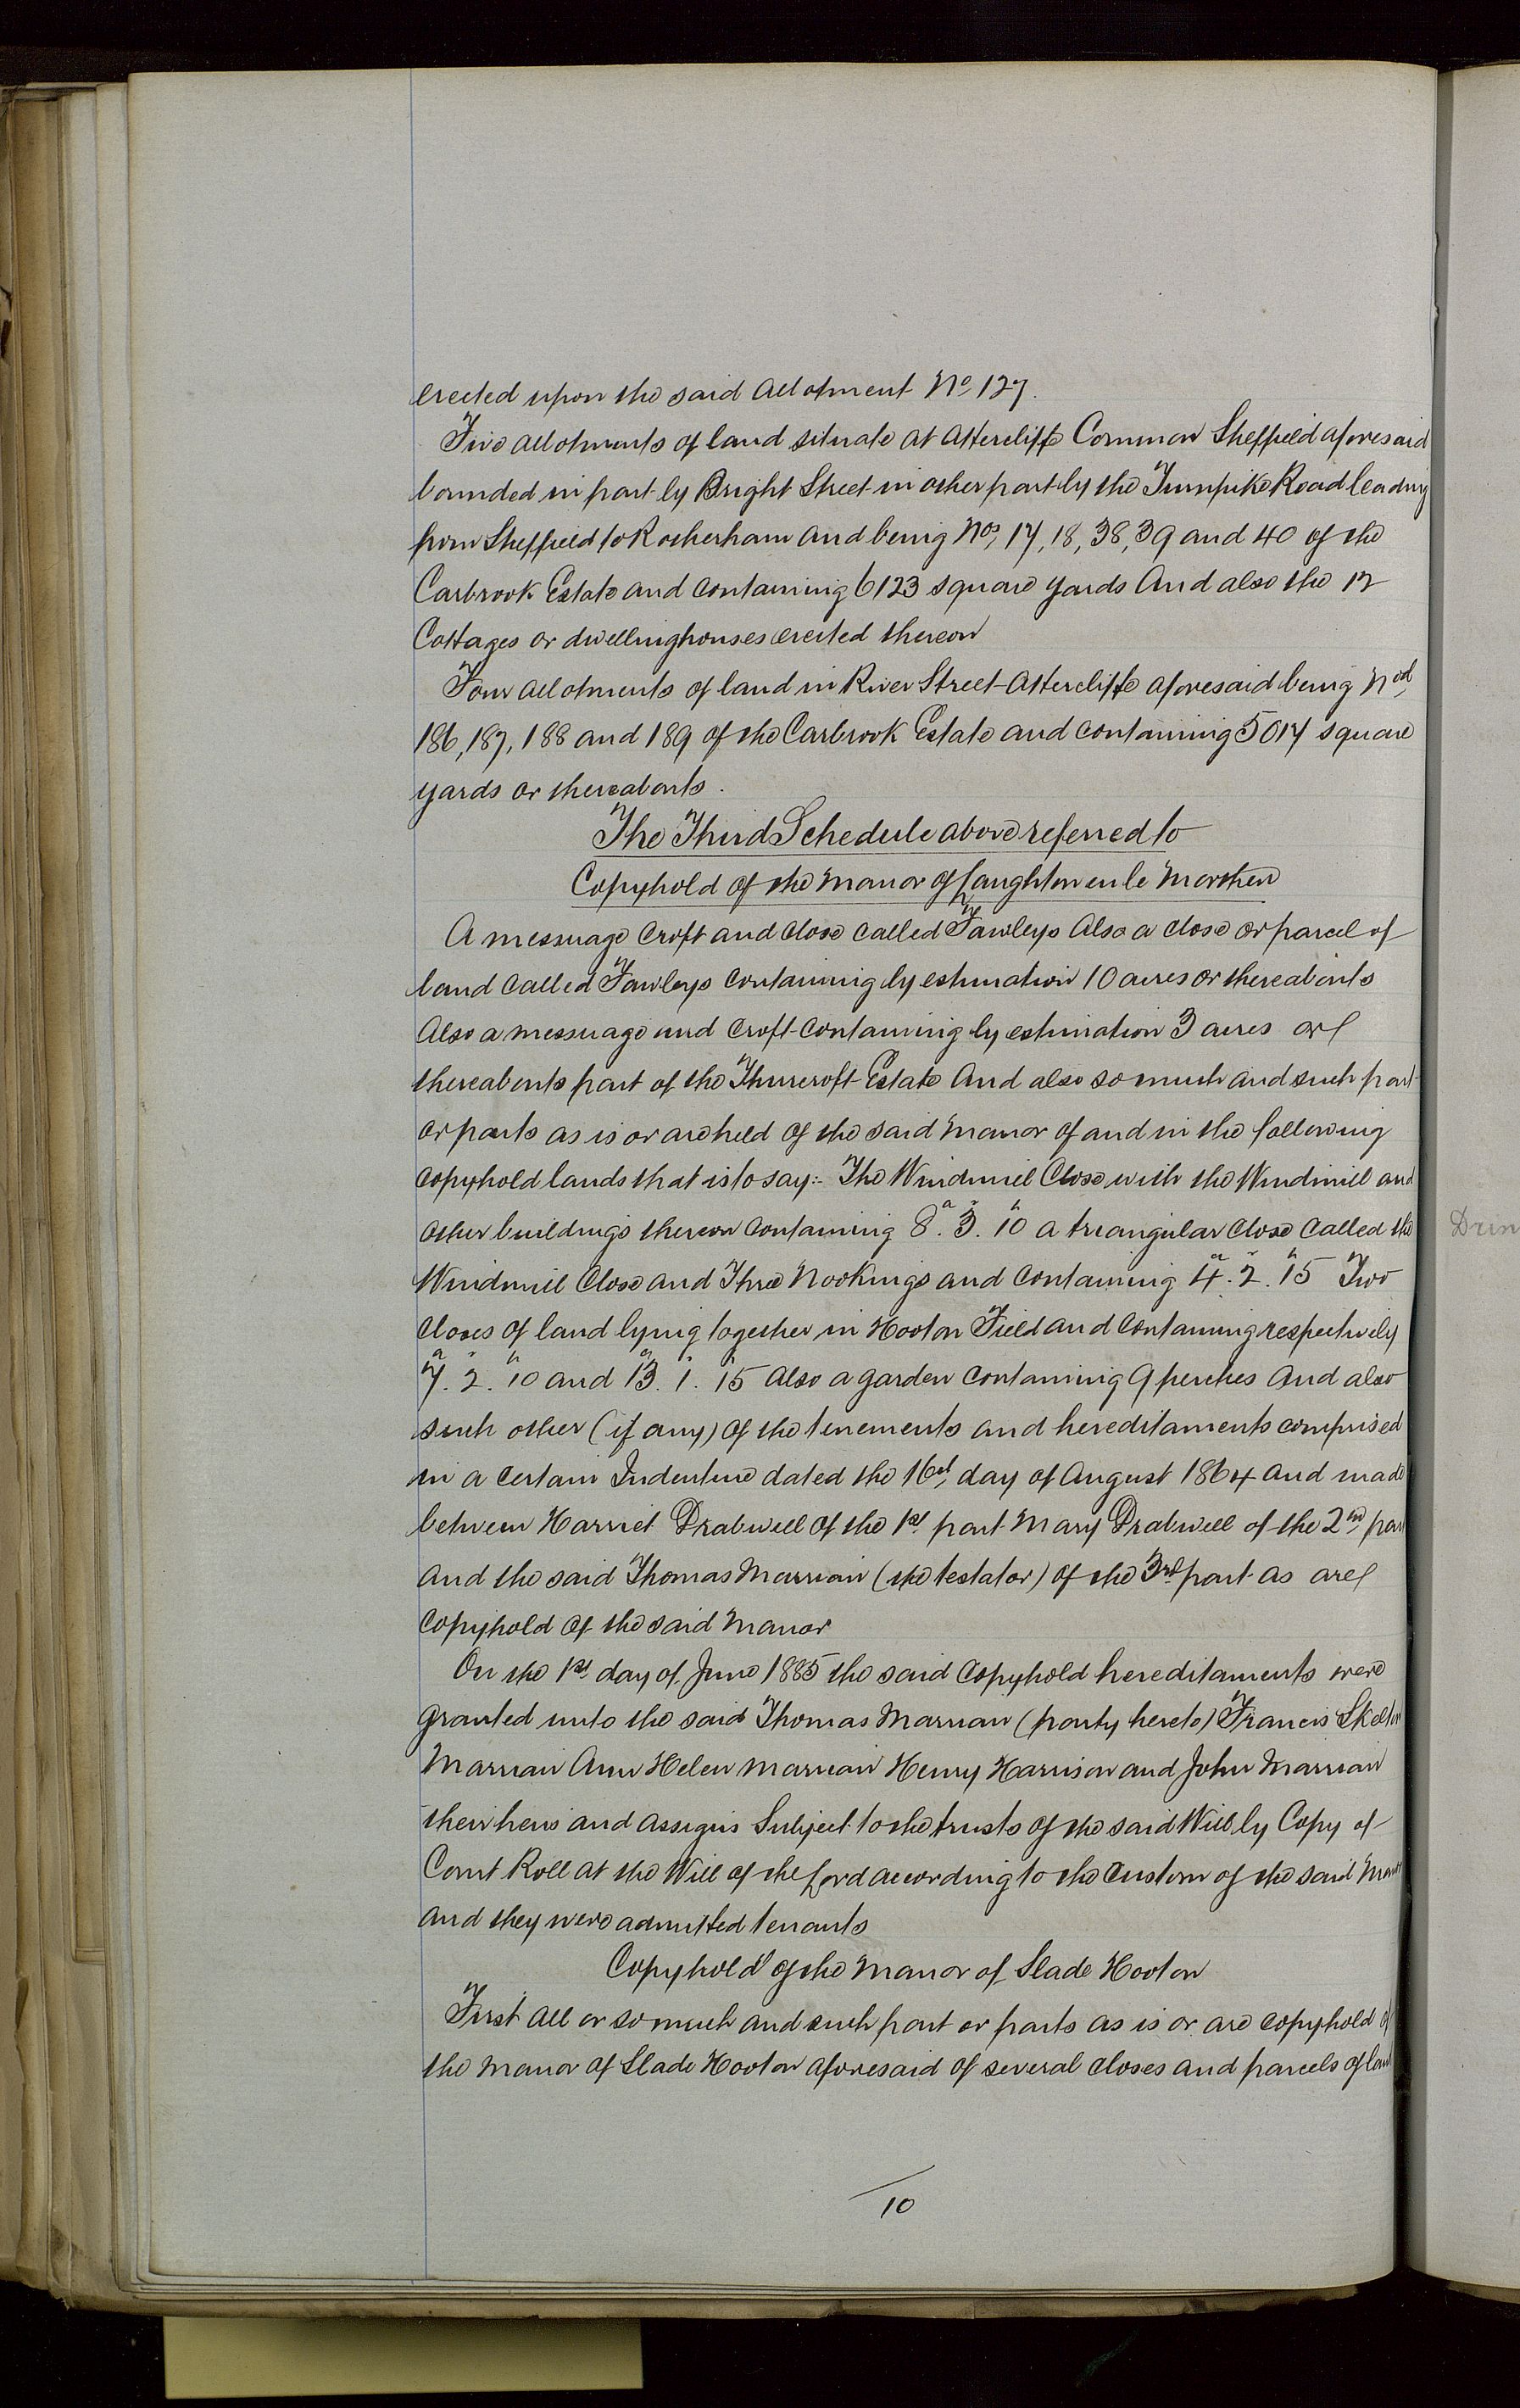 erected upon the said allotment No. 127.
Five allotments of land situate at Attercliffe Common Sheffield aforesaid
bounded in part by Bright Street in other part by the Turnpike Road leading
from Sheffield to Rotherham and being Nos, 17, 18, 38, 39 and 40 of the
Carbrook Estate and containing 6123 square yards And also the 12
Cottages or dwellinghouses erected thereon
Four allotments of land in River Street Attercliffe aforesaid being Nos,
186, 187, 188 and 189 of the Carbrook Estate and containing 5017 square
yards or thereabouts.
The Third Schedule above referred to
Copyhold of the Manor of Laughton en le Morthen
A messuage croft and close called Tawleys Also a close or parcel of
land called Tawleys containing by estimation 10 acres or thereabouts
Also a messuage and croft containing by estimation 3 acres or
thereabouts part of the Thurcroft Estate And also so much and such part
or parts as is or are held of the said Manor of and in the following
copyhold lands that is to say:- The Windmill Close with the Windmill and
other buildings thereon containing 8a. 3r. 10p a triangular close called the
Windmill Close and Three Nookings and containing 4a. 2r. 15p Two
closes of land lying together in Hooton Field and containing respectively
7a. 2r. 10p and 13a. 1r. 15p Also a garden containing 9 perches And also
such other (if any) of the tenements and hereditaments comprised
in a certain Indenture dated the 16th, day of August 1864 and made
between Harriet Drabwell of the 1st part Mary Drabwell of the 2nd part
and the said Thomas Marrian (the testator) of the 3rd part as are
copyhold of the said Manor
On the 1st day of June 1885 the said copyhold hereditaments were
granted unto the said Thomas Marrian (party hereto) Francis Skelton
Marrian Ann Helen Marrian Henry Harrison and John Marrian
their heirs and assigns Subject to the trusts of the said Will by Copy of
Court Roll at the Will of the Lord according to the custom of the said Manor
and they were admitted tenants
Copyhold of the Manor of Slade Hooton
First all or so much and such part or parts as is or are copyhold of
the Manor of Slade Hooton aforesaid of several closes and parcels of land
10
Drin